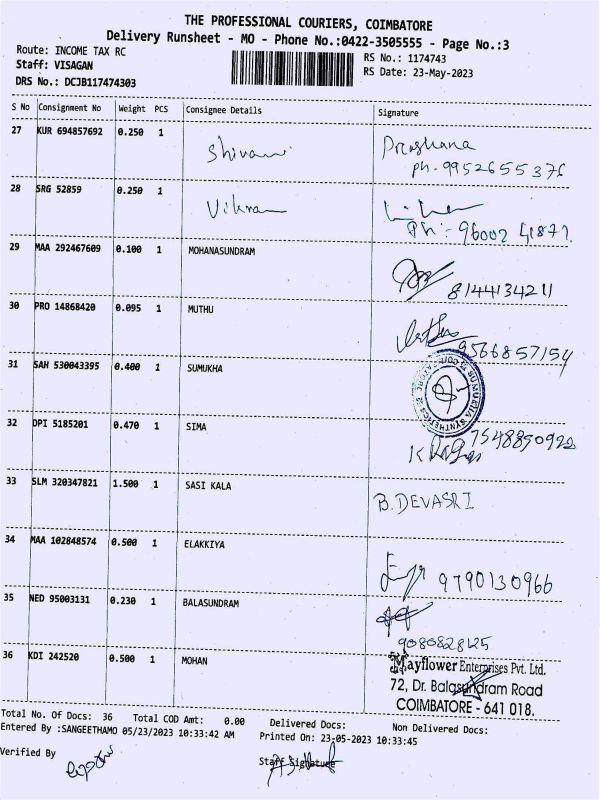 THE PROFESSIONAL COURIERS, COIMBATORE
Delivery Runsheet - MO - Phone No.:0422-3505555 - Page No.:3
Route: INCOME TAX RC
RS No.: 1174743
Staff: VISAGAN
RS Date: 23-May-2023
DRS No.: DCJB117474303
S No Consignment No Weight PCS Consignee Details Signature
27 KUR 694857692 0.250 1 Shivani Prashana
ph-9952655376
28 SRG 52859 0.250 1 Vikram
Ph:- 96002 41877.
29 MAA 292467609 0.100 1 MOHANASUNDRAM
8144134211
30 PRO 14868420 0.095 1 MUTHU
9566857154
31 SAH 530043395 0.400 1 SUMUKHA
32 DPI 5185201 0.470 1 SIMA
7548890922
33 SLM 320347821 1.500 1 SASI KALA
B. DEVASRI
34 MAA 102848574 0.500 1 ELAKKIYA
9790130966
35 NED 95003131 0.230 1 BALASUNDRAM
9080828125
36 KDI 242520 0.500 1 MOHAN
Mayflower Enterprises Pvt. Ltd.
72, Dr. Balasundram Road
COIMBATORE - 641 018.
Total No. Of Docs: 36 Total COD Amt: 0.00 Delivered Docs: Non Delivered Docs:
Entered By :SANGEETHAMO 05/23/2023 10:33:42 AM Printed On: 23-05-2023 10:33:45
Verified By
Staff Signature